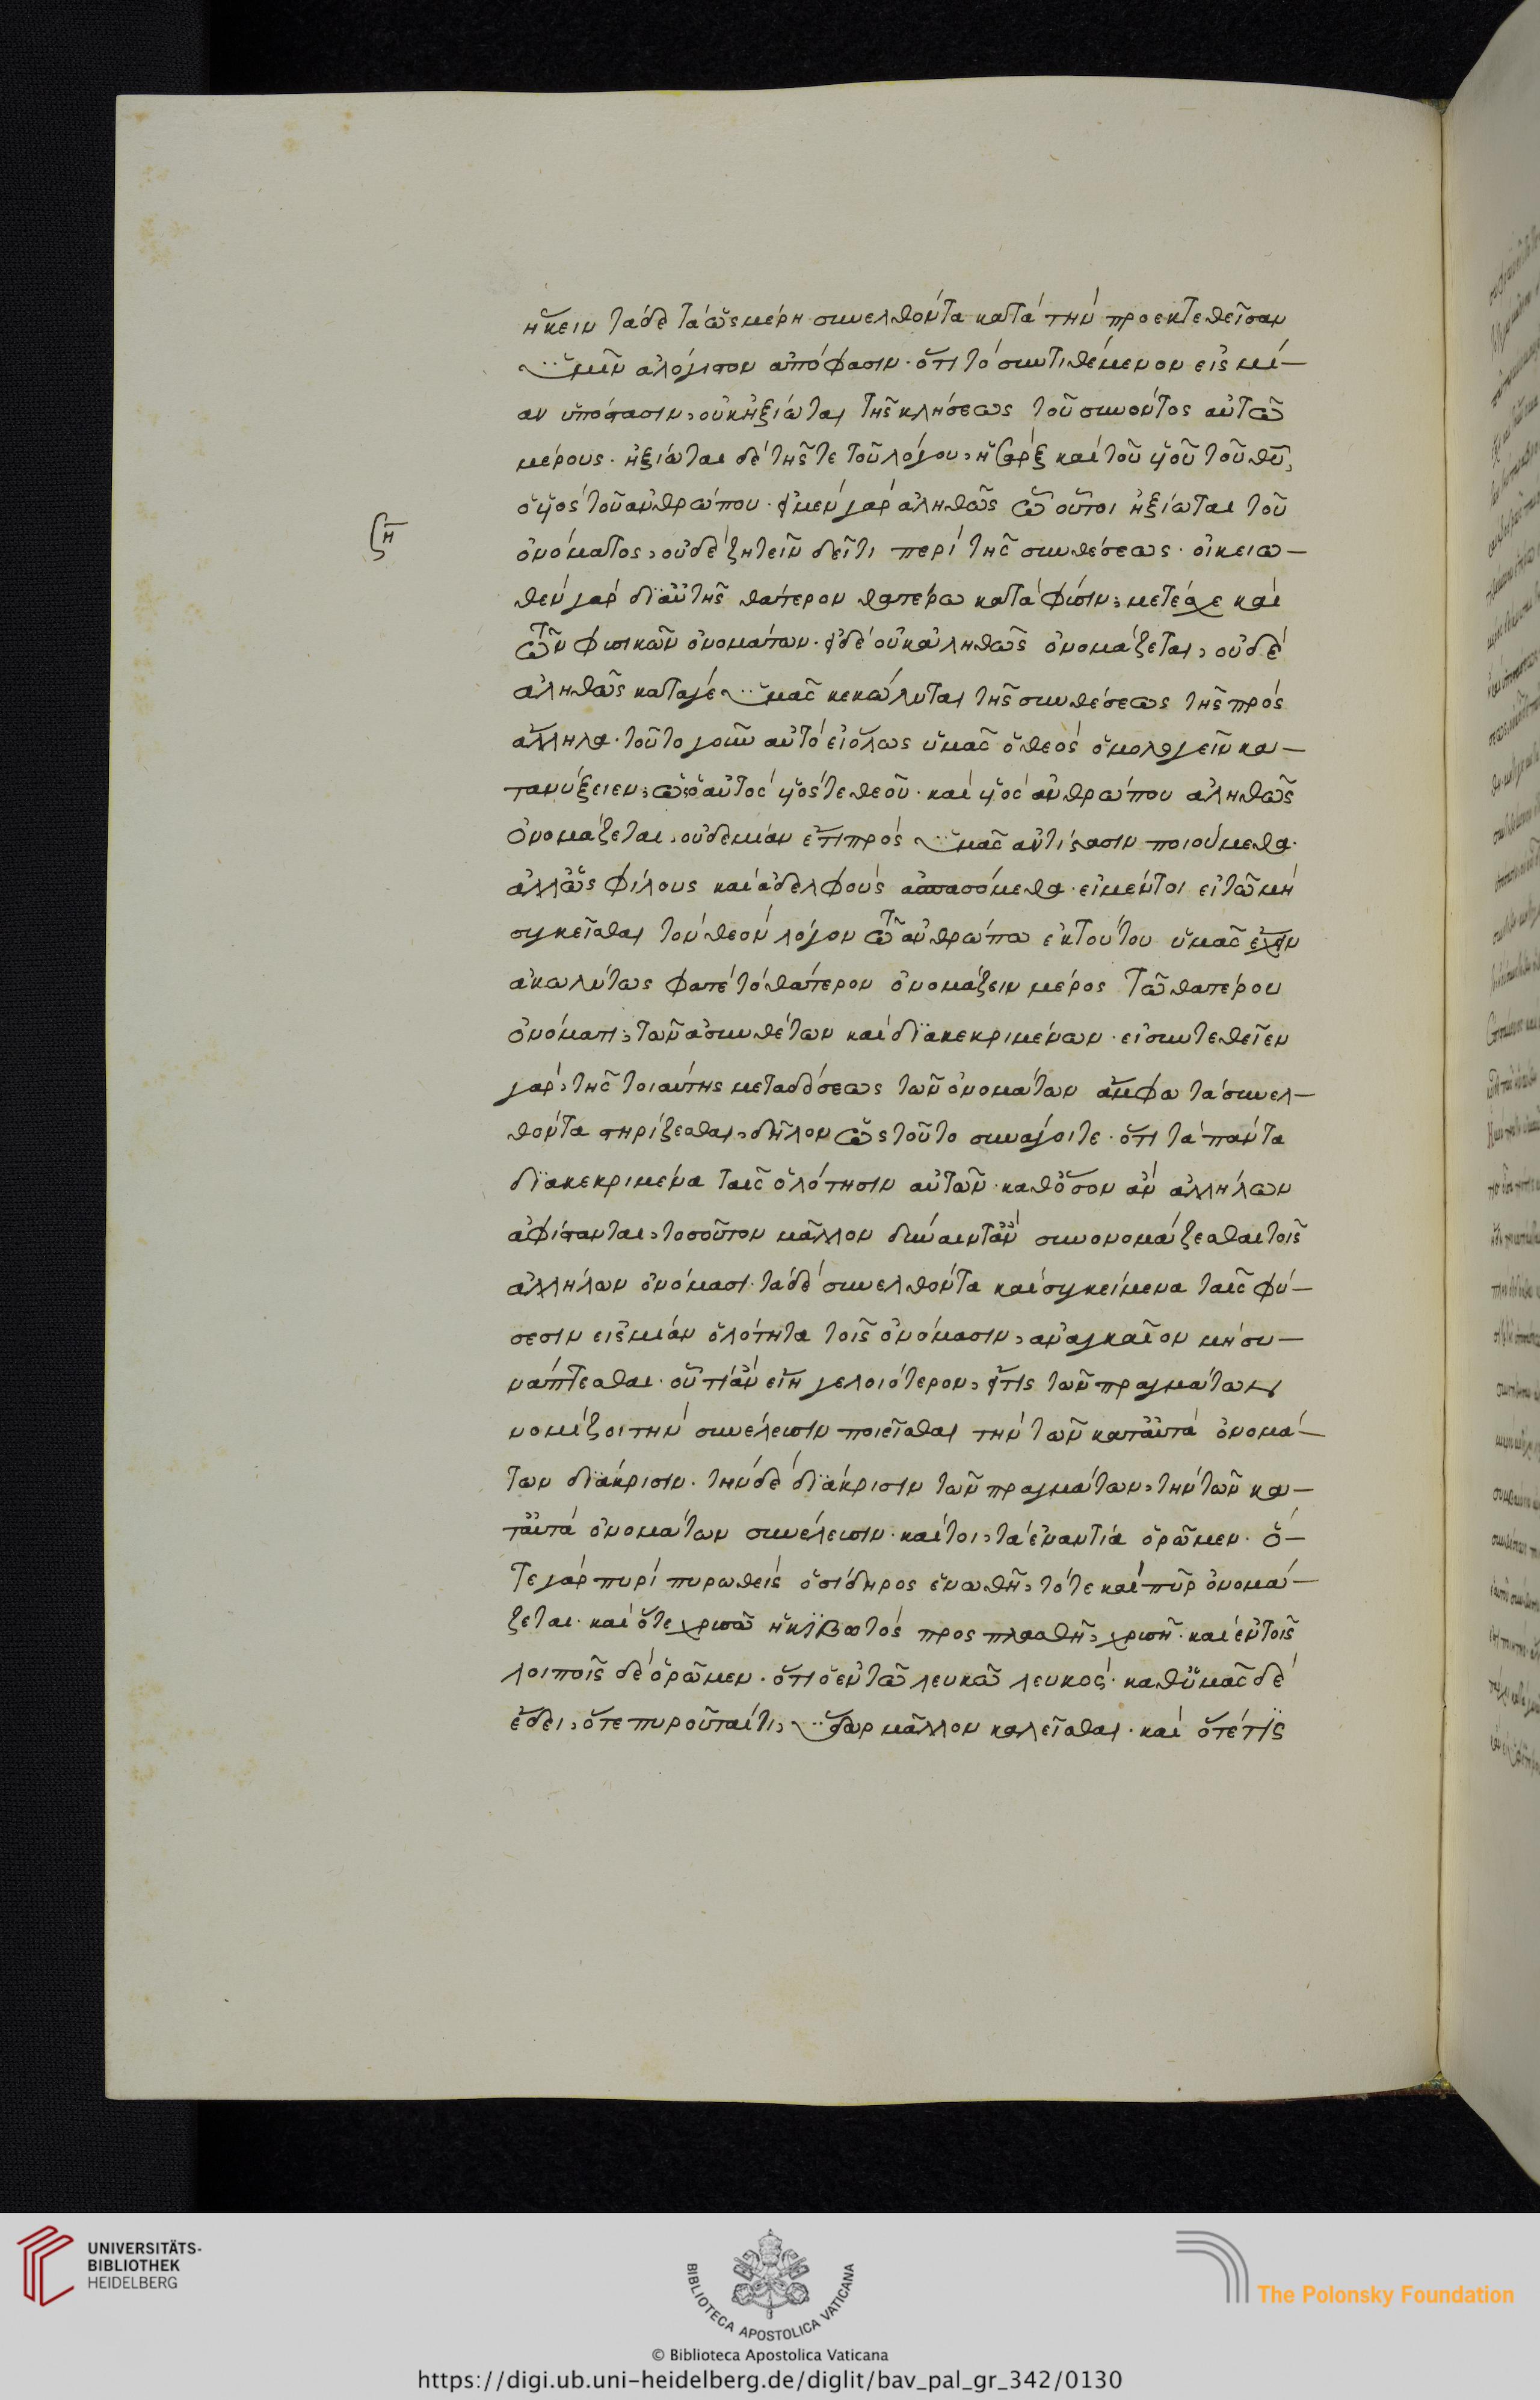 ἥκειν τάδε τὰ ὡς μέρη συνελθόντα κατὰ τὴν προεκτεθεῖσαν
ὑμῖν ἀλόγιστον ἀπόφασιν· ὅτι τὸ συντιθέμενον εἰς μί-
αν ὑπόστασιν, οὐκ ἠξίωται τῆς κλήσεως τοῦ συνόντος αὐτῷ
μέρους· ἠξίωται δὲ τῆς τε τοῦ λόγου, ἡ σάρξ καὶ τοῦ υἱοῦ τοῦ θυ,
ὁ υἱὸς τοῦ ἀνθρώπου· εἰ μὲν γὰρ ἀληθῶς οὗτοι ἠξίωται τοῦ
ζη
ὀνόματος, οὐδὲ ζητεῖν δεῖ τι περὶ τῆς συνθέσεως· οἰκειω-
θὲν γὰρ δι αὐτῆς θάτερον θατέρω κατὰ φύσιν, μετέσχε καὶ
τῶν φυσικῶν ὀνομάτων· εἰ δὲ οὐκ ἀληθῶς ὀνομάζεται, οὐδὲ
ἀληθῶς κατά γε ὑμᾶς κεκώλυται τῆς συνθέσεως τῆς πρὸς
ἄλληλα· τοῦτο γοῦν αὐτὸ εἰ ὅλως ὑμᾶς ὁ θεὸς ὁμολογεῖν κα-
τανύξειεν, ὡς ὁ αὐτὸς υἱός τε θεοῦ· καὶ υἱὸς ἀνθρώπου ἀληθῶς
ὀνομάζεται, οὐδεμίαν ἔτι πρὸς ὑμᾶς ἀντίστασιν ποιούμεθα·
ἀλλ ὡς φίλους καὶ ἀδελφοὺς ἀσπασόμεθα· εἰ μέντοι ἐν τῶ μὴ
συγκεῖσθαι τὸν θεὸν λόγον τῶ ἀνθρώπω ἐκ τούτου ὑμᾶς ἔχειν
ἀκωλύτως φατὲ τὸ θάτερον ὀνομάζειν μέρος τῶ θατέρου
ὀνόματι, τῶν ἀσυνθέτων καὶ διακεκριμένων· εἰ συντεθεῖεν
γὰρ, τῆς τοιαύτης μεταδόσεως τῶν ὀνομάτων ἄμφω τὰ συνελ-
θόντα στηρίζεσθαι, δῆλον ὡς τοῦτο συνάγοιτε· ὅτι τὰ πάντα
διακεκριμένα ταῖς ὁλότησιν αὐτῶν· καθ ὅσον ἂν ἀλλήλων
ἀφίστανται, τοσοῦτον μᾶλλον δύναιντ ἂν συνονομάζεσθαι τοῖς
ἀλλήλων ὀνόμασι· τὰ δὲ συνελθόντα καὶ συγκείμενα ταῖς φύ-
σεσιν εἰς μίαν ὁλότητα τοῖς ὀνόμασιν, ἀναγκαῖον μὴ συ-
νάπτεσθαι· οὗ τί ἂν εἴη γελοιότερον, εἴ τις τῶν πραγμάτων
νομίζοι τὴν συνέλευσιν ποιεῖσθαι τὴν τῶν κατ αὐτὰ ὀνομά-
των διάκρισιν· τὴν δὲ διάκρισιν τῶν πραγμάτων, τὴν τῶν κα-
τ αὐτὰ ὀνομάτων συνέλευσιν· καίτοι, τὰ ἐναντία ὁρῶμεν· ὅ-
τε γὰρ πυρὶ πυρωθεὶς ὁ σίδηρος ἑνωθῆ, τότε καὶ πῦρ ὀνομά-
ζεται· καὶ ὅτε χρυσῶ ἡ κιβωτὸς προσπλασθῆ, χρυσῆ· καὶ ἐν τοῖς
λοιποῖς δὲ ὁρῶμεν· ὅτι ὁ ἐν τῶ λευκῶ λευκός· καθ ὑμᾶς δὲ
ἔδει, ὅτε πυροῦταί τι, ὕδωρ μᾶλλον καλεῖσθαι· καὶ ὅτε τίς
UNIVERSITÄTS-
BIBLIOTHEK
HEIDELBERG
BIBLIOTECA APOSTOLICA VATICANA
The Polonsky Foundation
© Biblioteca Apostolica Vaticana
https://digi.ub.uni-heidelberg.de/diglit/bav_pal_gr_342/0130